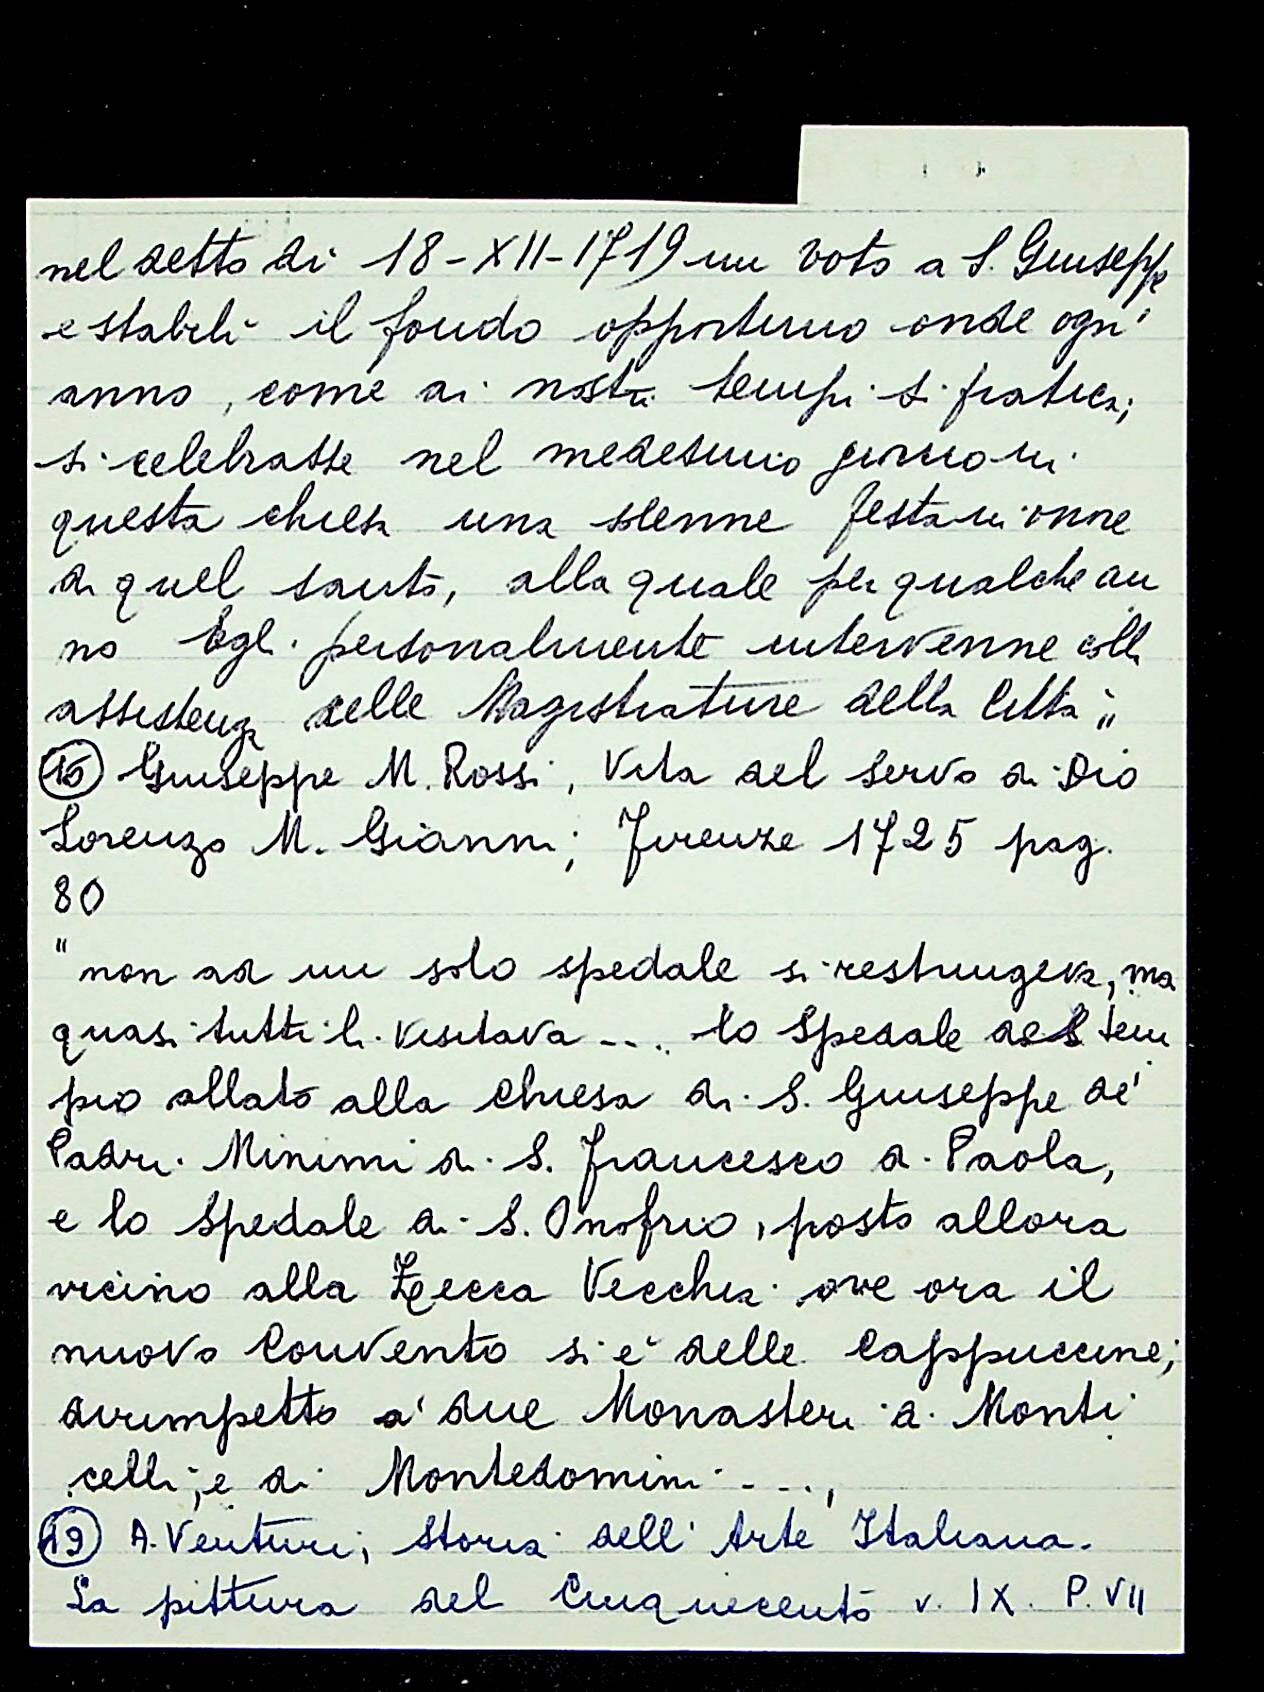 nel detto dì 18-XII-1719 un voto a S. Giuseppe
e stabilì il fondo opportuno onde ogni
anno, come ai nostri tempi si pratica;
si celebrasse nel medesimo giorno in
questa chiesa una solenne festa in onore
di quel santo, alla quale per qualche an
no Egli personalmente intervenne colla
assistenza delle Magistrature della Città"
Giuseppe M. Rossi, Vita del servo di Dio
Lorenzo M. Gianni; Firenze 1725 pag.
80
"non ad un solo spedale si restringeva, ma
quasi tutti li visitava .... lo Spedale del tem
pio allato alla chiesa di S. Giuseppe de'
Padri Minimi di S. Francesco di Paola,
e lo Spedale di S. Onofrio, posto allora
vicino alla Zecca Vecchia ove ora il
nuovo Convento si è delle Cappuccine;
dirimpetto a' due Monasteri di Monti
celli, e di Montedomini ....
19 A. Venturi; Storia dell'Arte Italiana.
La pittura del Cinquecento v. IX. P. VII